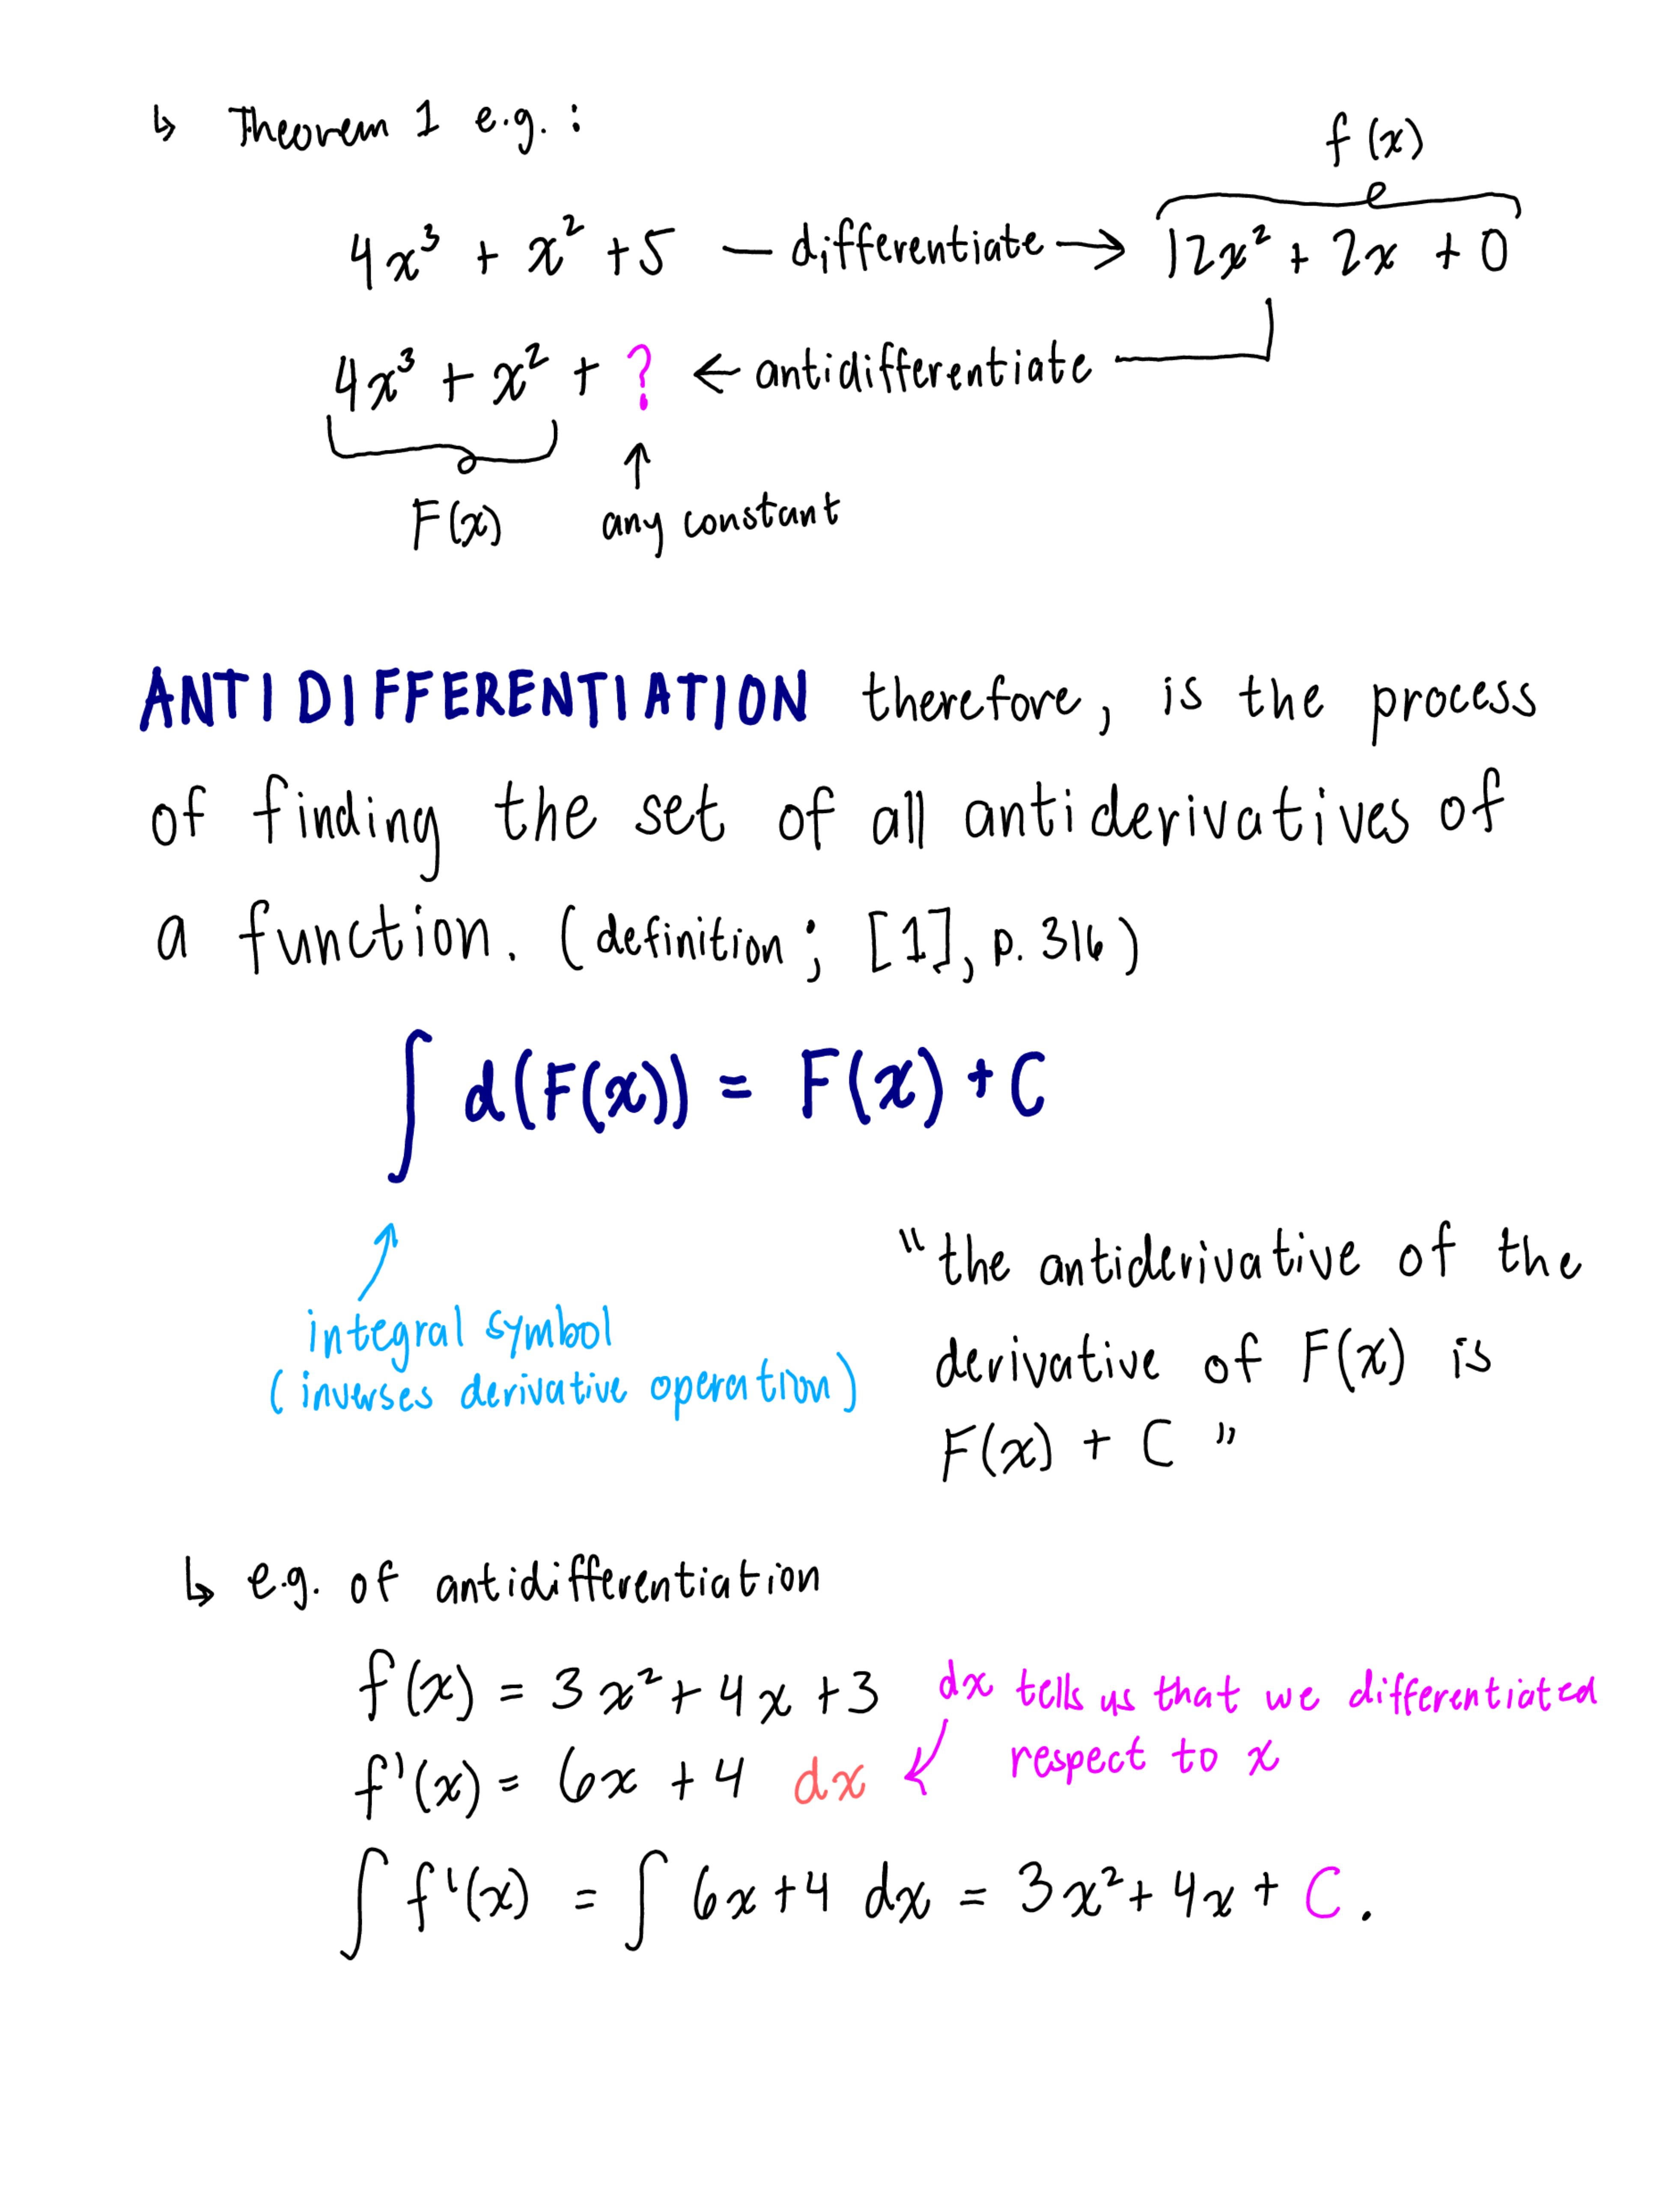 ↳ Theorem 1 e.g. :
f(x)
4x³ + x² + 5 — differentiate → 12x² + 2x + 0
4x³ + x² + ? ← antidifferentiate
F(x) any constant
ANTIDIFFERENTIATION therefore, is the process
of finding the set of all antiderivatives of
a function. (definition; [1], p. 316)
∫ d(F(x)) = F(x) + C
integral symbol
(inverses derivative operation)
"the antiderivative of the
derivative of F(x) is
F(x) + C "
↳ e.g. of antidifferentiation
f(x) = 3x² + 4x + 3
dx tells us that we differentiated
respect to x
f'(x) = 6x + 4 dx
∫ f'(x) = ∫ 6x + 4 dx = 3x² + 4x + C.